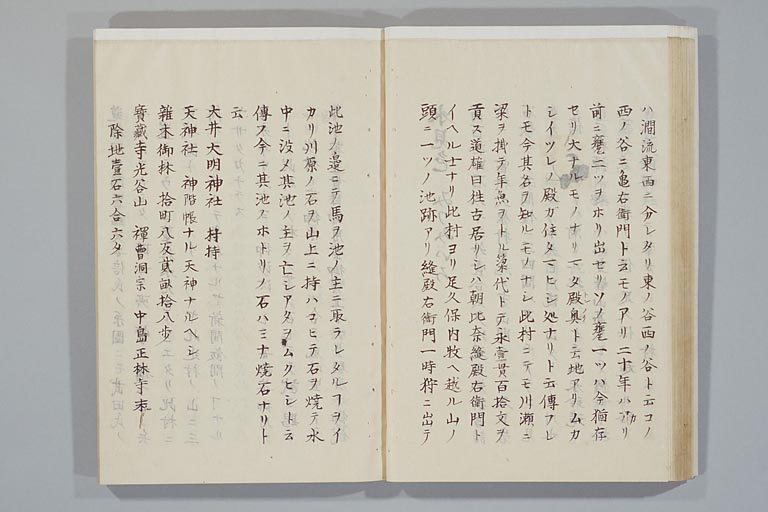 ハ澗流東西ニ分レタリ東ノ谷西ノ谷ト云コノ
西ノ谷ニ亀右衛門ト云モノアリ二十年ハカリ
前ニ甕二ツヲホリ出セリソノ甕一ツハ今猶存
セリ大ナルモノナリ下タ殿奥ト云地アリムカ
シイツレノ殿カ住タマヒシ処ナリト云傳フレ
トモ今其名ヲ知ルモノナシ此村ニテモ川瀬ニ
梁ヲ掛テ年魚ヲトル簗代トテ永壹貫百拾文ヲ
貢ス道雄曰牲古居リシハ朝比奈縫殿右衛門ト
イヘル士ナリ此村ヨリ足久保内牧ヘ越ル山ノ
頭ニ一ツノ池跡アリ縫殿右衛門一時狩ニ出テ
此池ノ邉ニテ馬ヲ池ノ主ニ取ラレタルヲイ
カリ川原ノ石ヲ山上ニ持ハコヒテ石ヲ焼テ水
中ニ没メ其池ノ主ヲ亡シアタヲムクヒシト云
傳フ今ニ其池ノホトリノ石ハミナ焼石ナリト
云
大井大明神社 村持
天神社 神階帳ナル天神ナルヘシ
雜木御林 拾町八反貳畝拾八歩
寶蔵寺光谷山 禪曹洞宗 中島正林寺末
除地壹石六合六夕